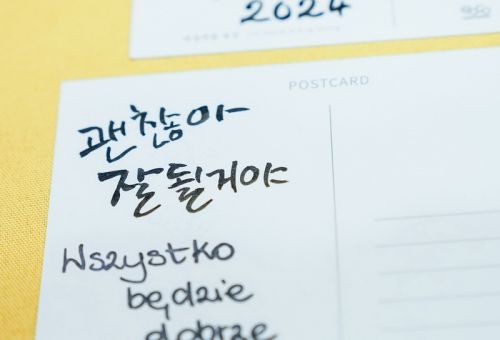 2024
POSTCARD
괜찮아
잘 될거야
Wszystko
będzie
dobrze